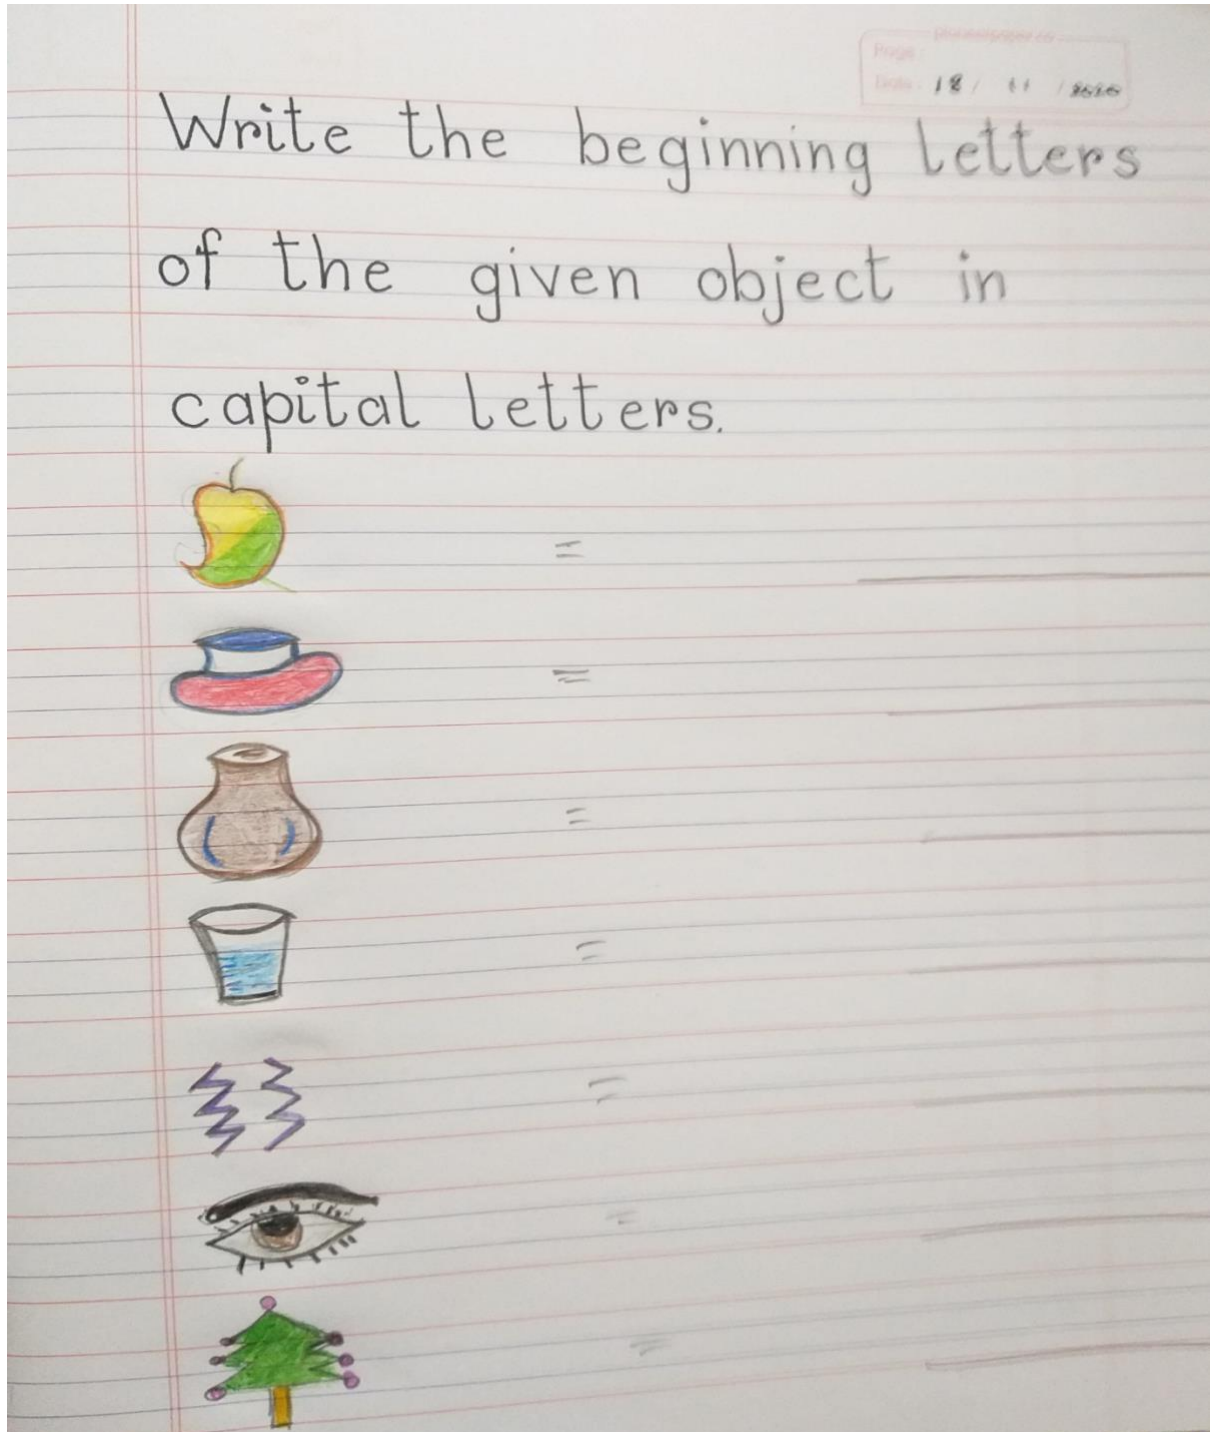 Page
Date 18 / 11 /
Write the beginning letters
of the given object in
capital letters.
=
=
=
=
=
=
=